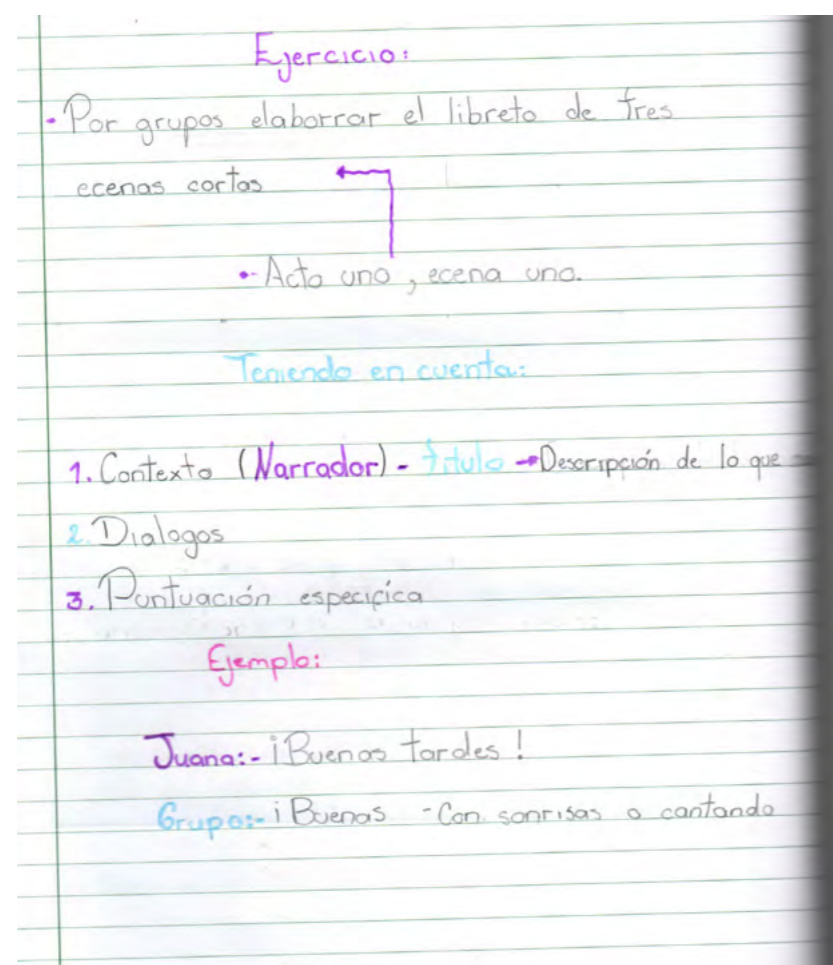 Ejercicio:
• Por grupos elaborrar el libreto de tres
ecenas cortas
• Acto uno, ecena uno.
Teniendo en cuenta:
1. Contexto (Narrador) - título → Descripción de lo que
2. Dialogos
3. Puntuación especifica
Ejemplo:
Juana:- ¡Buenas tardes!
Grupo:- ¡Buenas - Con sonrisas o cantando